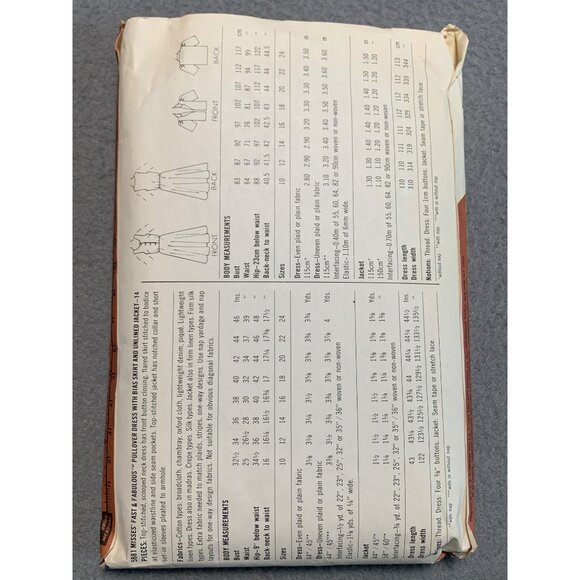 5861 MISSES' FAST & FABULOUS™ PULLOVER DRESS WITH BIAS SKIRT AND UNLINED JACKET—14
PIECES: Top-stitched, scooped neck dress has front button closing, flared skirt stitched to bodice
at elasticized waistline and side seam pockets. Top-stitched jacket has notched collar and short
set-in sleeves pleated to armhole.
Fabrics—Cotton types: broadcloth, chambray, oxford cloth, lightweight denim, piqué. Lightweight
linen types. Dress also in madras. Crepe types. Silk types. Jacket also in firm linen types. Firm silk
types. Extra fabric needed to match plaids, stripes, one-way designs. Use nap yardage and nap
layouts for one-way design fabrics. Not suitable for obvious diagonal fabrics.
BODY MEASUREMENTS
Bust 32½ 34 36 38 40 42 44 46 Ins.
Waist 25 26½ 28 30 32 34 37 39 "
Hip-9" below waist 34½ 36 38 40 42 44 46 48 "
Back-neck to waist 16 16¼ 16½ 16¾ 17 17¼ 17⅜ 17½ "
Sizes 10 12 14 16 18 20 22 24
Dress—Even plaid or plain fabric
44" 45"**
Yds.
Dress—Uneven plaid or plain fabric
44" 45"**
Yds.
Interfacing—½ yd. of 22", 23", 25", 32" or 35"/36" woven or non-woven
Elastic—1⅛ yds. of ¼" wide.
Jacket
44" 45"**
58" 60"**
Yds.
Interfacing—¾ yd. of 22", 23", 25", 32" or 35"/36" woven or non-woven
Dress length 43 43¼ 43½ 43¾ 44 44¼ 44¼ 44½ Ins.
Dress width 122 123½ 125½ 127½ 129½ 131½ 133½ 135½ "
Notions: Thread. Dress: Four ⅜" buttons. Jacket: Seam tape or stretch lace.
*without nap **with nap ***with or without nap
FRONT BACK FRONT BACK
BODY MEASUREMENTS
Bust 83 87 92 97 102 107 112 117 cm
Waist 64 67 71 76 81 87 94 99 "
Hip-23cm below waist 88 92 97 102 107 112 117 122 "
Back-neck to waist 40.5 41.5 42 42.5 43 44 44 44.5 "
Sizes 10 12 14 16 18 20 22 24
Dress—Even plaid or plain fabric
115cm** 2.80 2.90 2.90 3.20 3.30 3.40 3.40 3.50 m
Dress—Uneven plaid or plain fabric
115cm** 3.10 3.20 3.40 3.40 3.50 3.60 m
Interfacing—0.40m of 55, 60, 64, 82 or 90cm woven or non-woven
Elastic—1.10m of 6mm wide.
Jacket
115cm** 1.30 1.30 1.40 1.40 1.50 1.50 m
150cm** 1.10 1.10 1.20 1.20 1.20 1.20 "
Interfacing—0.70m of 55, 60, 64, 82 or 90cm woven or non-woven
Dress length 110 110 111 111 112 112 112 113 cm
Dress width 310 314 319 324 329 334 339 344 "
Notions: Thread. Dress: Four 1cm buttons. Jacket: Seam tape or stretch lace.
*without nap **with nap ***with or without nap